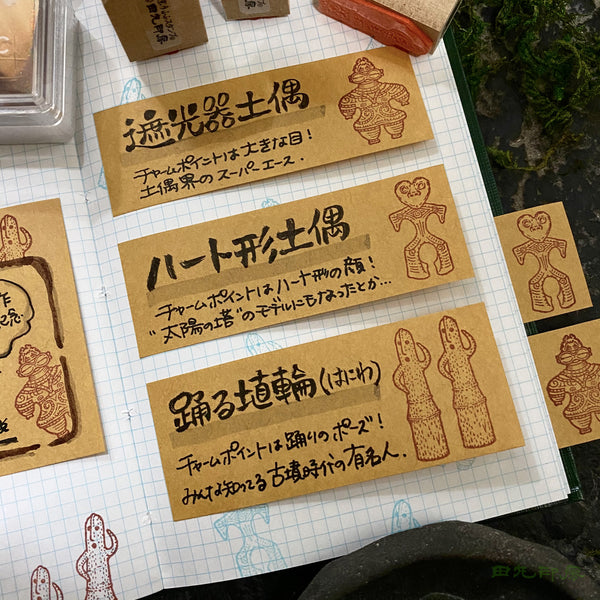 遮光器土偶
チャームポイントは大きな目！
土偶界のスーパーエース．
ハート形土偶
チャームポイントはハート形の顔！
"太陽の塔"のモデルにもなったとか…
踊る埴輪(はにわ)
チャームポイントは踊りのポーズ！
みんな知ってる古墳時代の有名人．
作
念